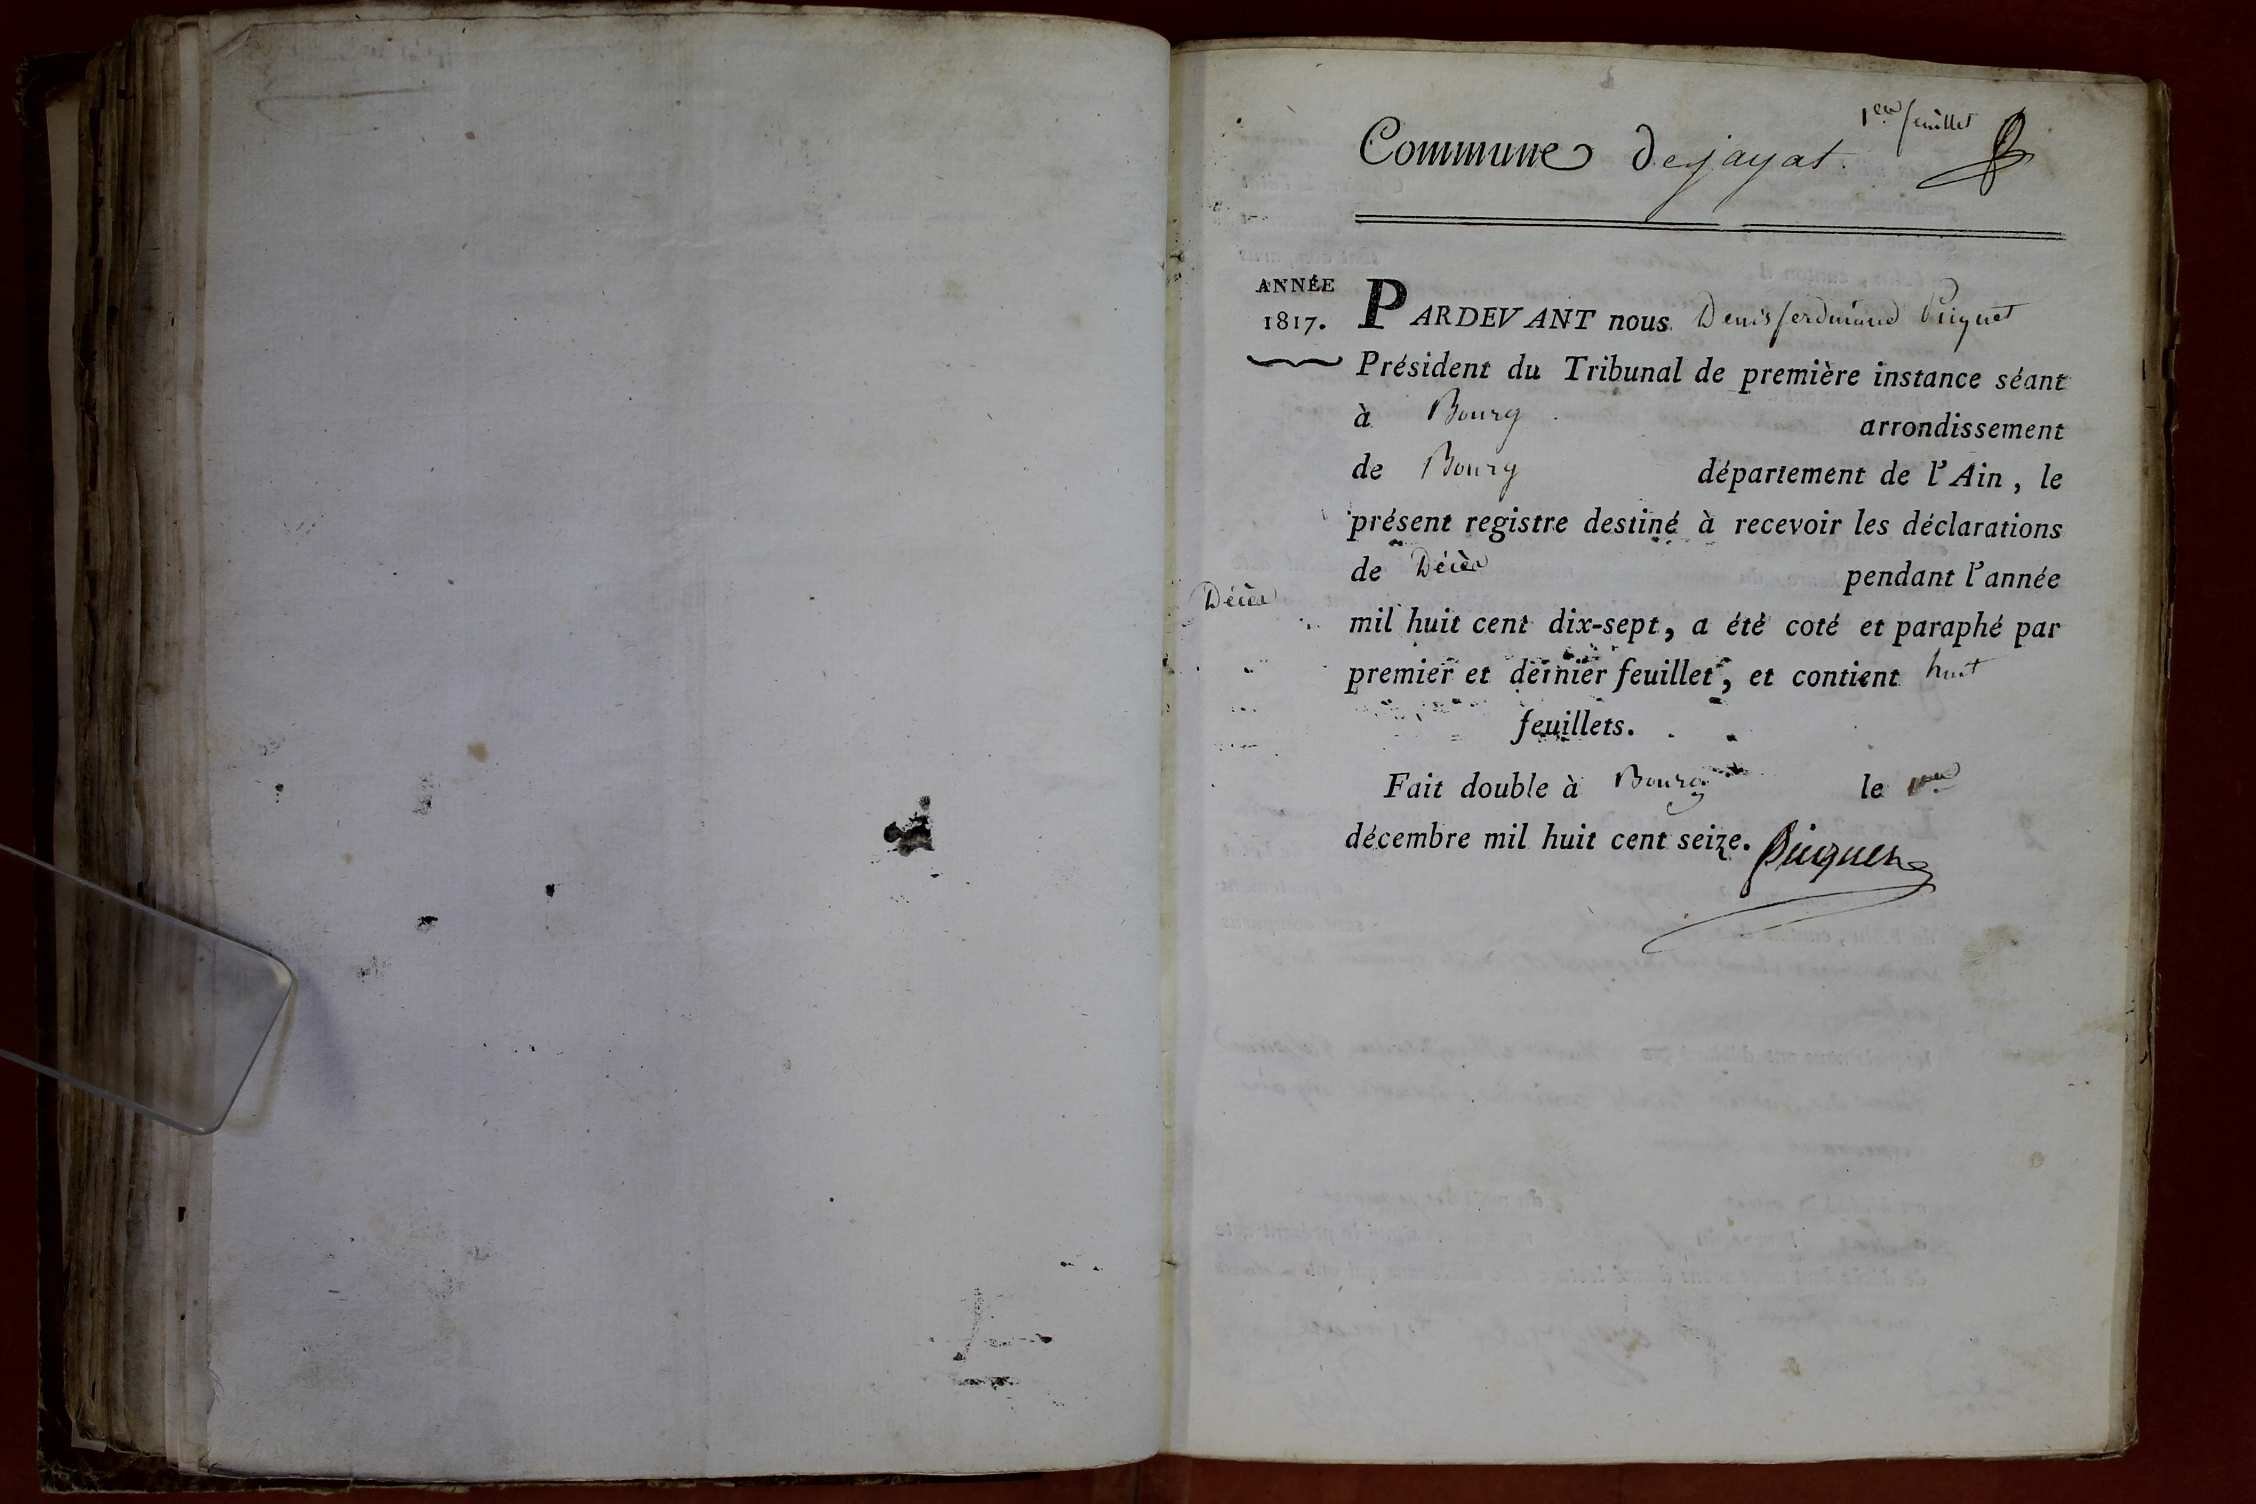 1er feuillet
Commune de jayat.
ANNÉE
1817.
PARDEVANT nous Denis ferdinand Puiguet
Président du Tribunal de première instance séant
à Bourg arrondissement
de Bourg département de l'Ain, le
présent registre destiné à recevoir les déclarations
de Décès pendant l'année
Décès
mil huit cent dix-sept, a été coté et paraphé par
premier et dernier feuillet, et contient huit
feuillets.
Fait double à Bourg le 1er
décembre mil huit cent seize.